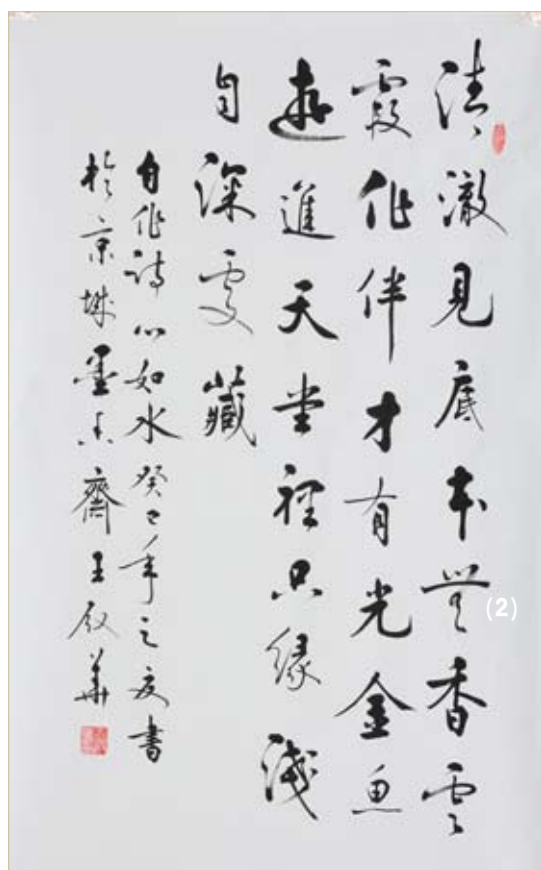 清澈見底本無香雲
霞作伴才有光金魚
遊進天堂裡只緣淺
自深處藏
自作詩心如水癸巳年之夏書
於京城墨齋王華
(2)